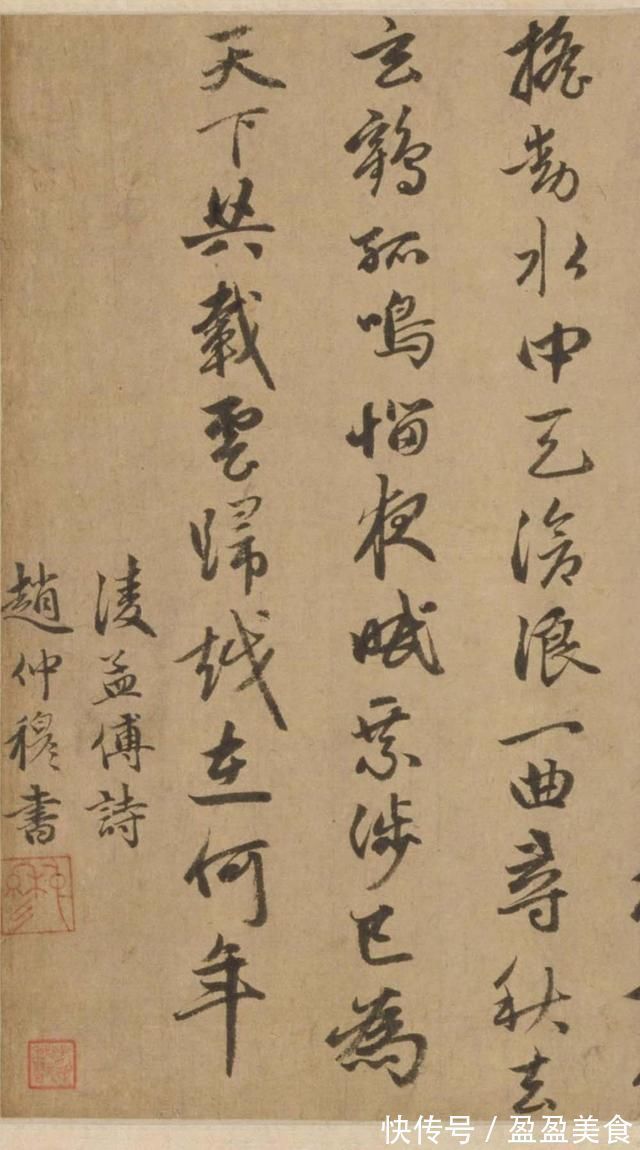 搖動水中天滄浪一曲尋秋去
玄鶴孤鳴惱夜眠涉已為
天下共載雲歸越在何年
淩孟傅詩
趙仲穆書
快传号／盈盈美食